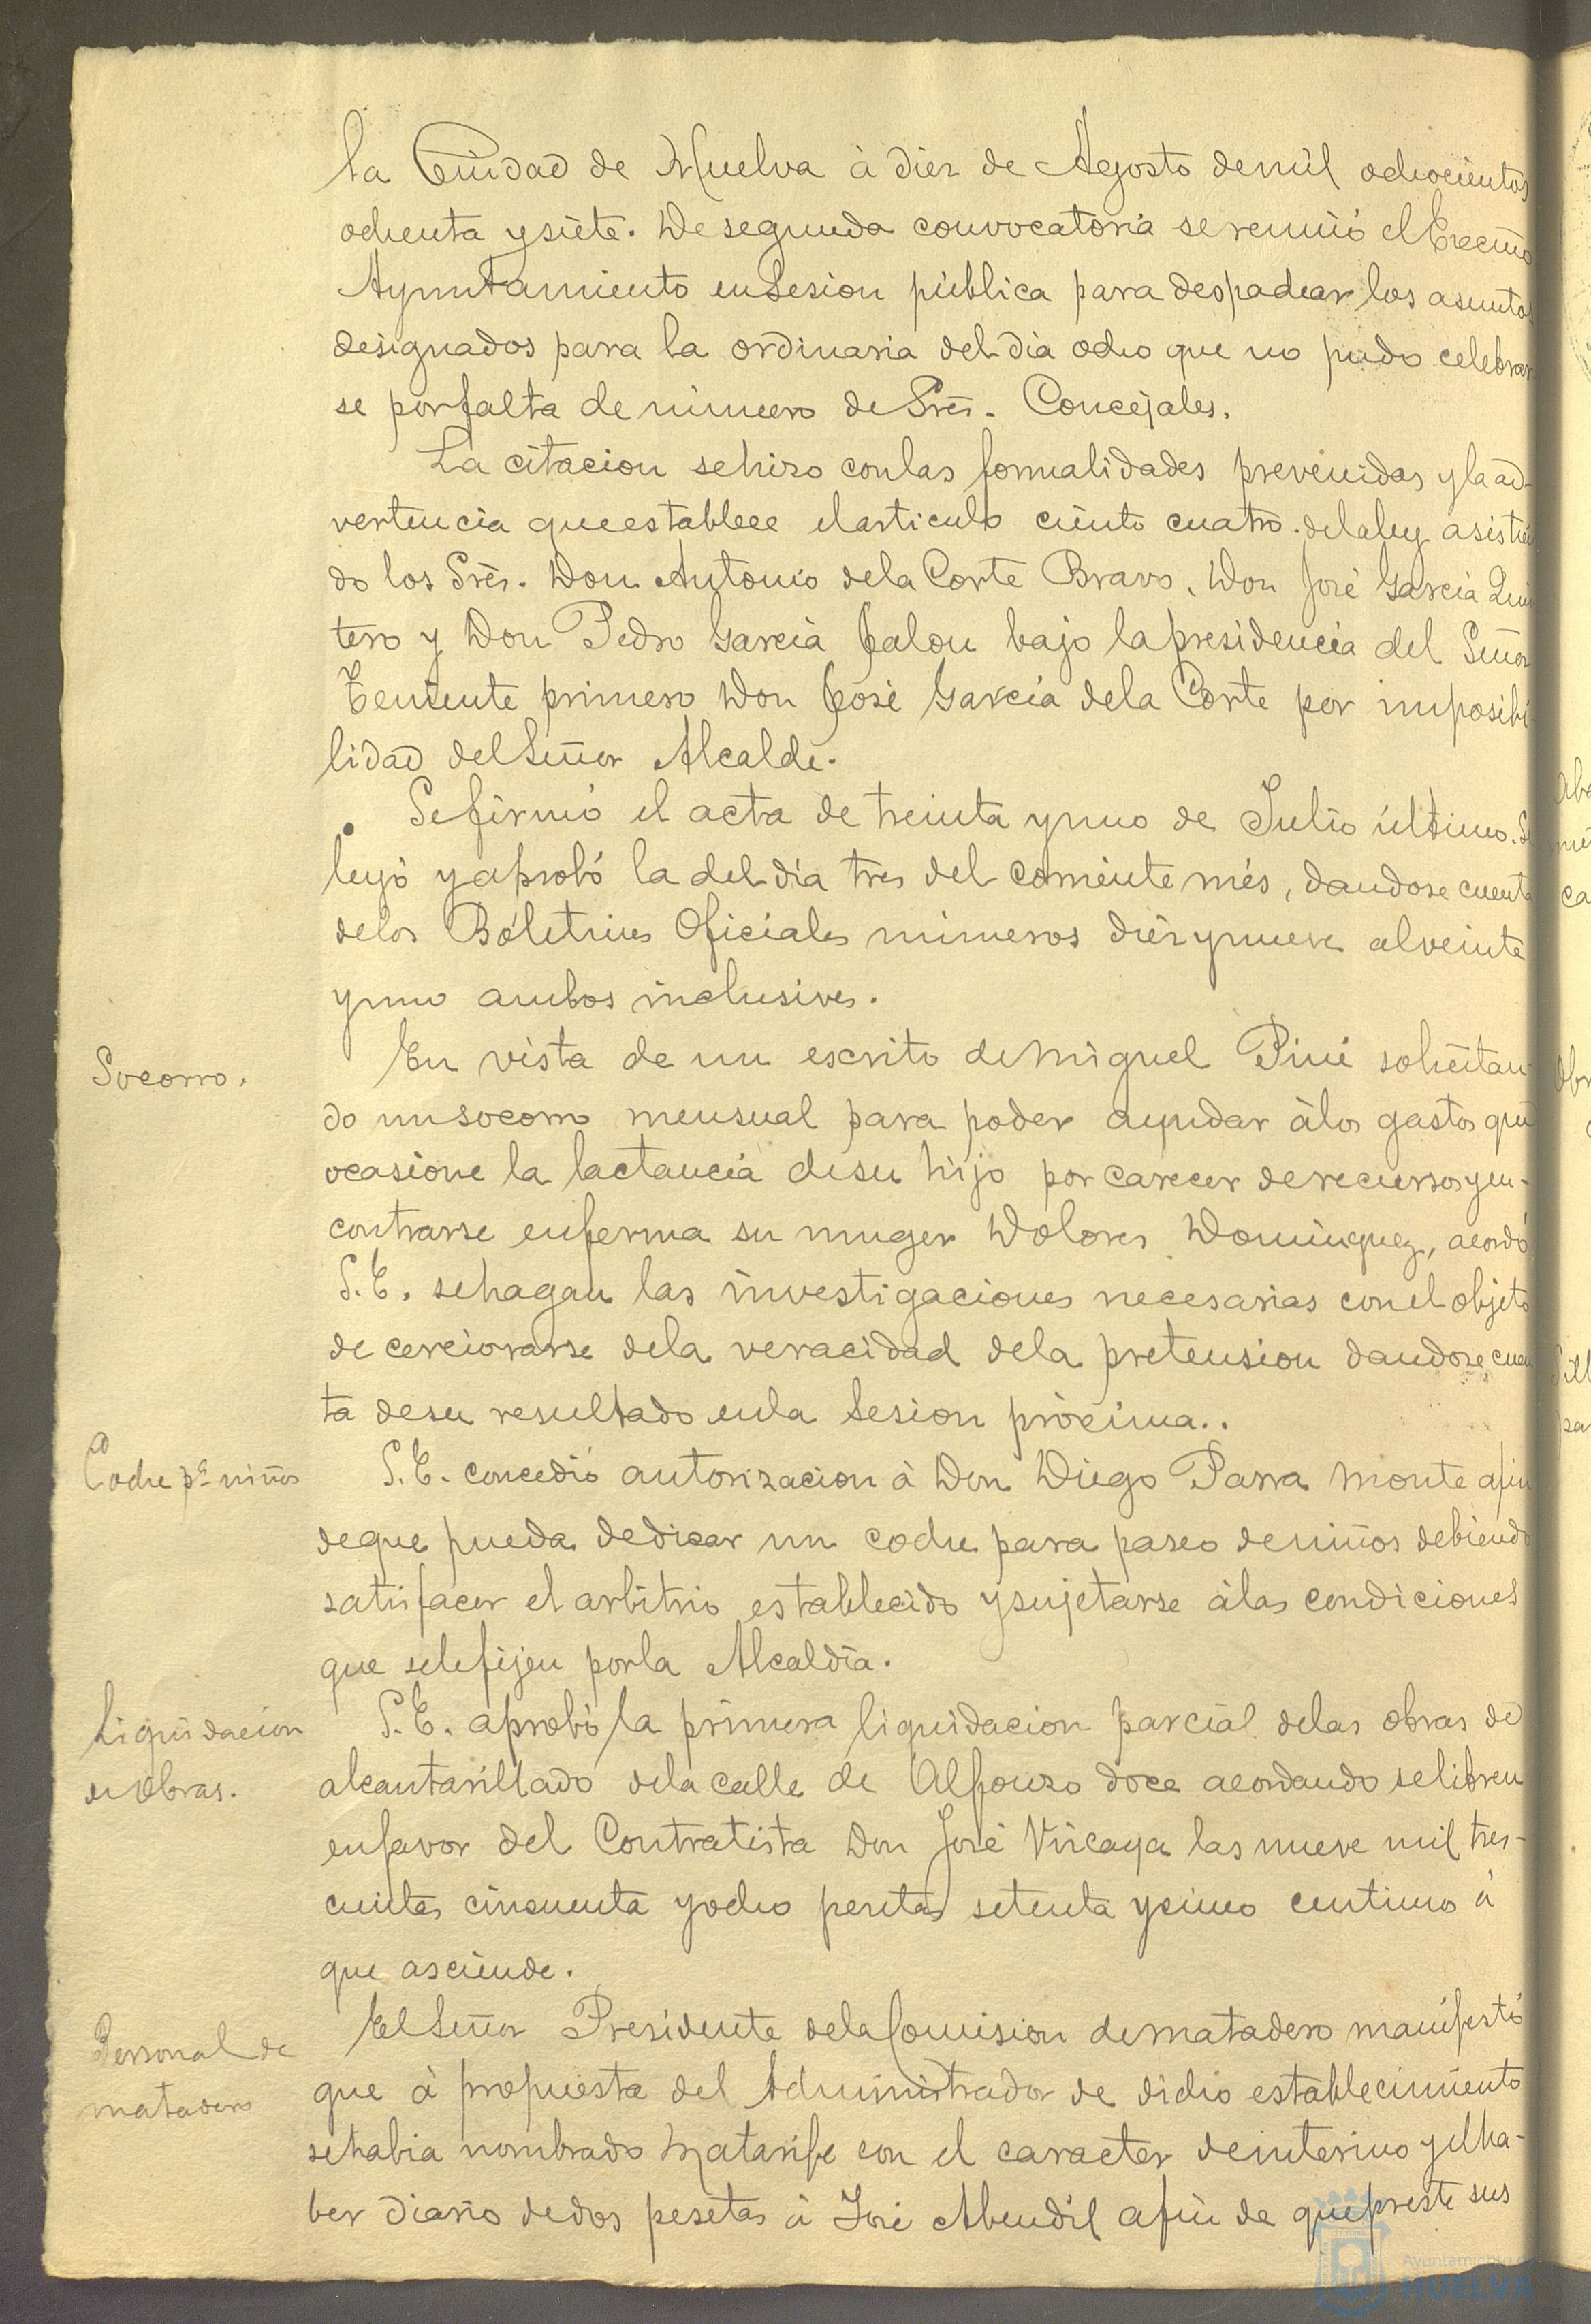 la Ciudad de Huelva à diez de Agosto de mil ochocientos
ochenta y siete. De segunda convocatoria se reunió el Excmo
Ayuntamiento en Sesion pública para despachar los asuntos
designados para la ordinaria del dia ocho que no pudo celebrar
se por falta de número de Sres. Concejales.
La citacion se hizo con las formalidades prevenidas y la ad-
vertencia que establece el articulo ciento cuatro de la ley asistien
do los Sres. Don Antonio de la Corte Bravo, Don José Garcia Quin
tero y Don Pedro Garcia Jalon bajo la presidencia del Señor
Teniente primero Don José Garcia de la Corte por imposibi
lidad del Señor Alcalde.
Se firmó el acta de treinta y uno de Julio último. Se
leyó y aprobó la del dia tres del corriente més, dandose cuenta
de los Boletines Oficiales números diez y nueve al veinte
y uno ambos inclusives.
Socorro.
En vista de un escrito de Miguel Pini solicitan
do un socorro mensual para poder ayudar à los gastos que
ocasione la lactancia de su hijo por carecer de recursos y en-
contrarse enferma su muger Dolores Dominguez, acordó
S.E. se hagan las investigaciones necesarias con el objeto
de cerciorarse de la veracidad de la pretension dandose cuen
ta de su resultado en la Sesion próxima..
Coche pª niños
S.E. concedió autorizacion à Don Diego Parra Monte a fin
de que pueda dedicar un coche para paseo de niños debiendo
satisfacer el arbitrio establecido y sujetarse à las condiciones
que se le fijen por la Alcaldia.
Liquidacion
de Obras.
S.E. aprobó la primera liquidacion parcial de las obras de
alcantarillado de la calle de Alfonso doce acordando se libren
en favor del Contratista Don José Vizcaya las nueve mil tres-
cientas cincuenta y ocho pesetas setenta y cinco centimos à
que asciende.
Personal de
matadero
El Señor Presidente de la Comision de matadero manifestó
que à propuesta del Administrador de dicho establecimiento
se habia nombrado Matarife con el caracter de interino y el ha-
ber diario de dos pesetas à José Abendil a fin de que preste sus
Ayuntamiento
HUELVA